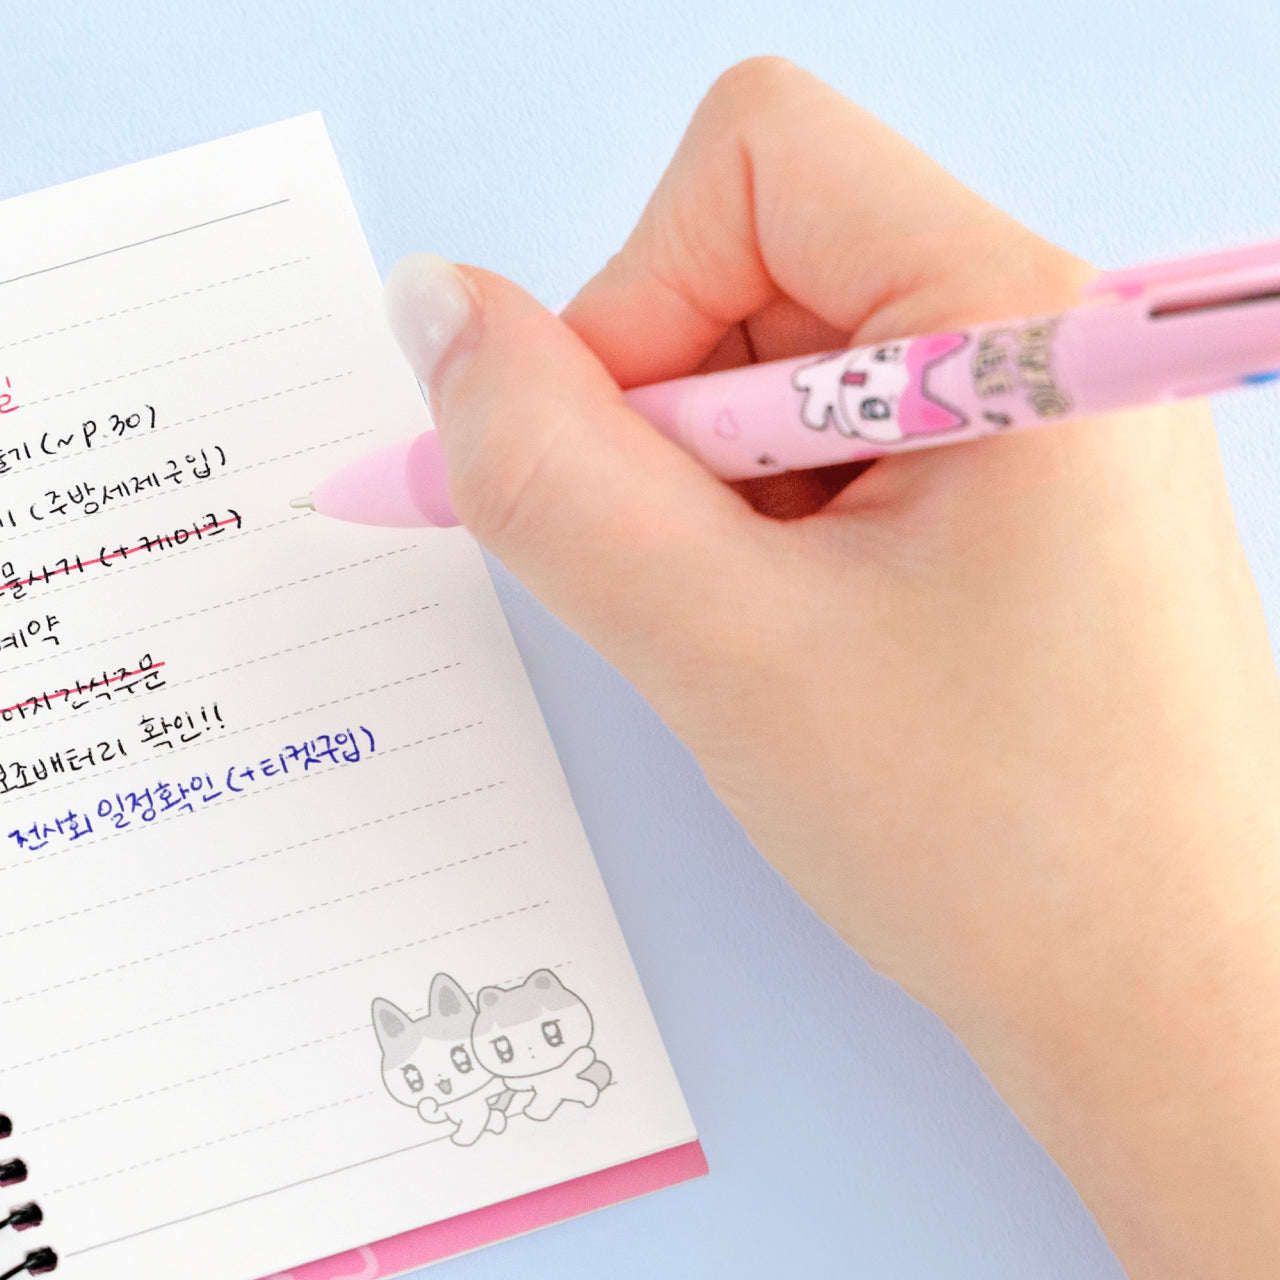 일
기 (~P.30)
(주방세제구입)
물사기 (+케이크)
예약
아지간식주문
보조배터리 확인!!
전시회 일정확인 (+티켓구입)